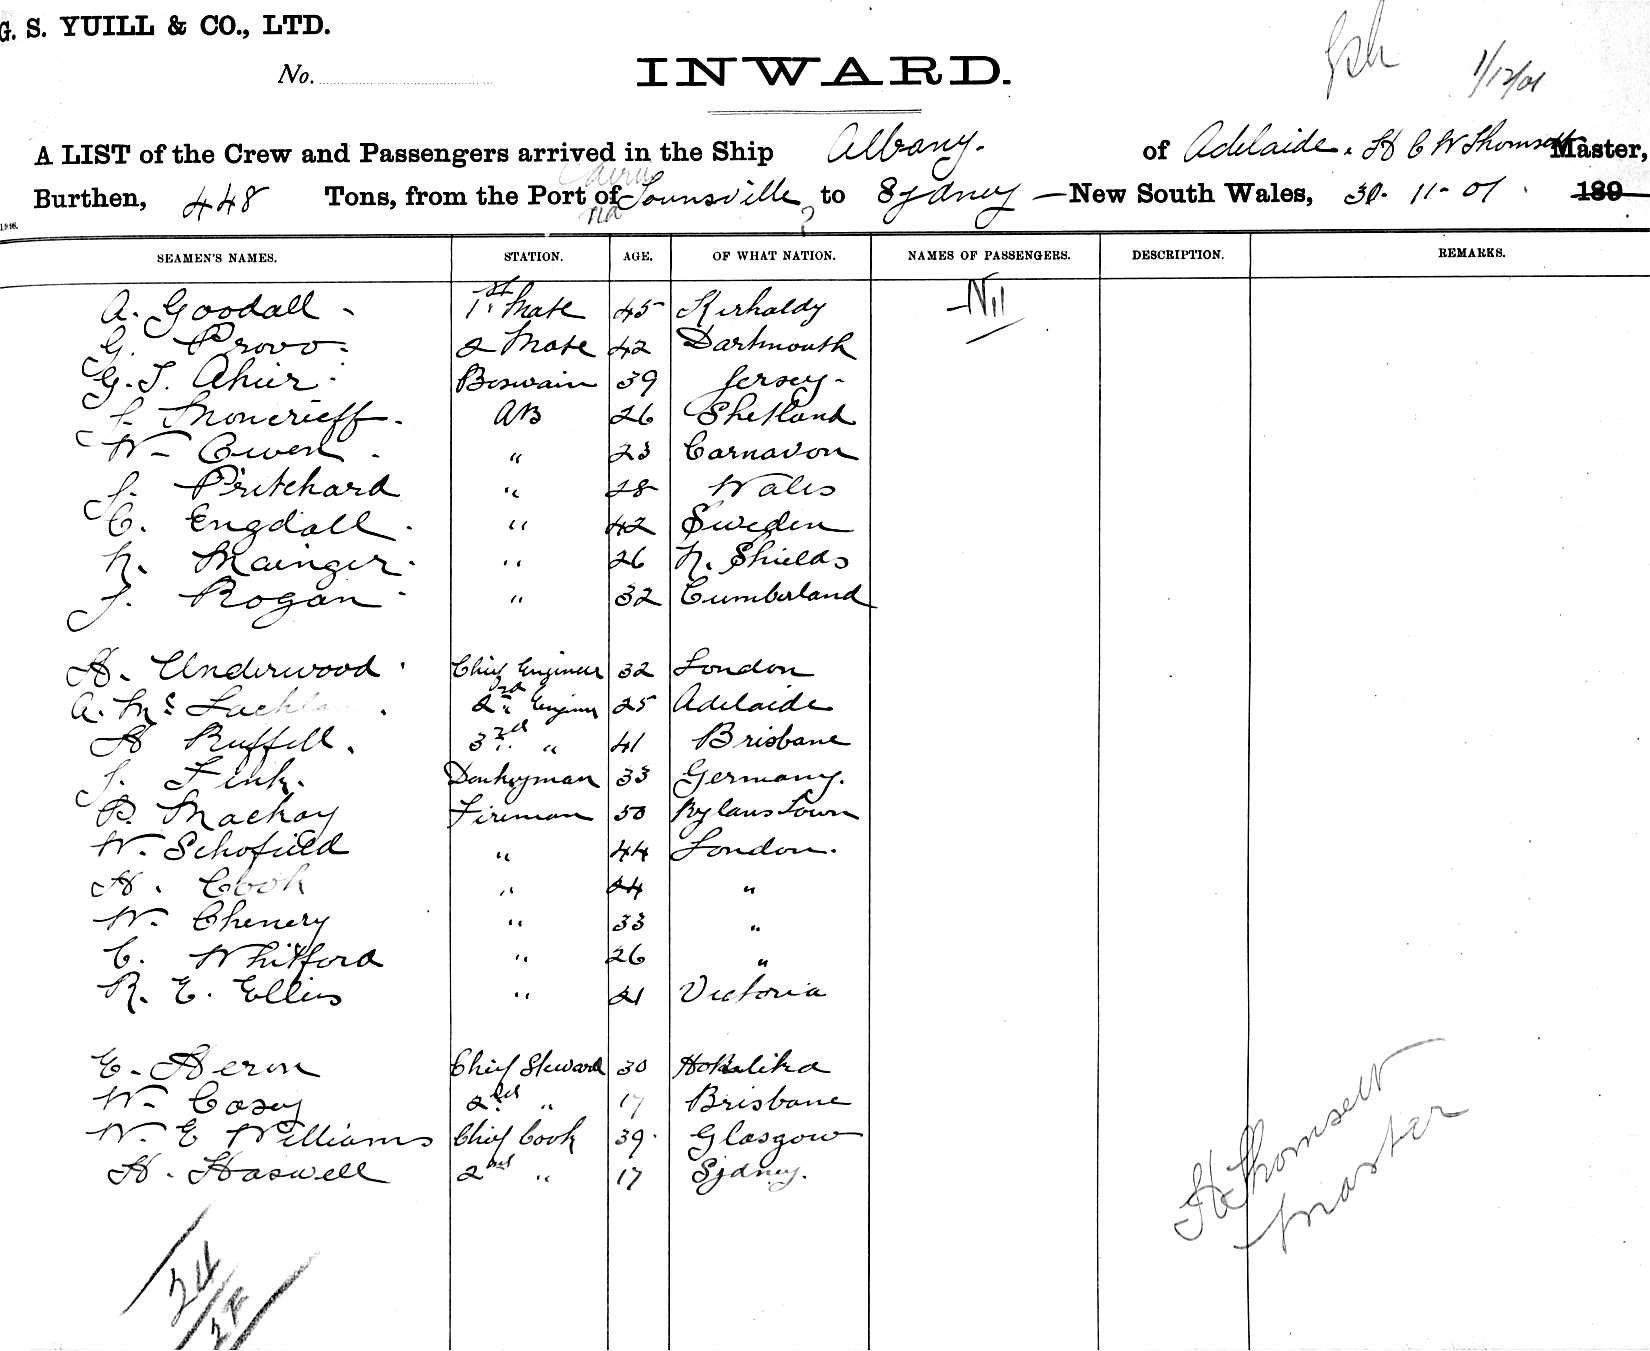 G. S. YUILL & CO., LTD.
No.
INWARD.
1/12/01
A LIST of the Crew and Passengers arrived in the Ship Albany. of Adelaide. H C W Thomsett Master,
Burthen, 448 Tons, from the Port of Townsville to Sydney — New South Wales, 30. 11- 01. 189
SEAMEN'S NAMES. STATION. AGE. OF WHAT NATION. NAMES OF PASSENGERS. DESCRIPTION. REMARKS.
A. Goodall 1st Mate 45 Kirkaldy Nil
G. Provo 2 Mate 42 Dartmouth
G. J. Ahier Boswain 39 Jersey
J. Moncrieff AB 26 Shetland
W. Owen " 23 Carnavon
J. Pritchard " 28 Wales
C. Engdall " 42 Sweden
N. Mainger " 26 N. Shields
J. Rogan " 32 Cumberland
H. Underwood Chief Engineer 32 London
A. Mc Lachlan 2nd Engineer 25 Adelaide
H Ruffell. 3rd " 41 Brisbane
J. Fink. Donkeyman 33 Germany.
D. Mackay Fireman 50 Rylans Town
W. Schofield " 44 London.
H. Cook " 24 "
W. Chenery " 33 "
C. Whitford " 26 "
R. E. Ellis " 21 Victoria
E. Heron Chief Steward 30 Hokalika
W. Casey 2nd " 17 Brisbane
W. E Williams Chief Cook 39 Glasgow
H. Haswell 2nd " 17 Sydney.
H Thomsett
Master
24